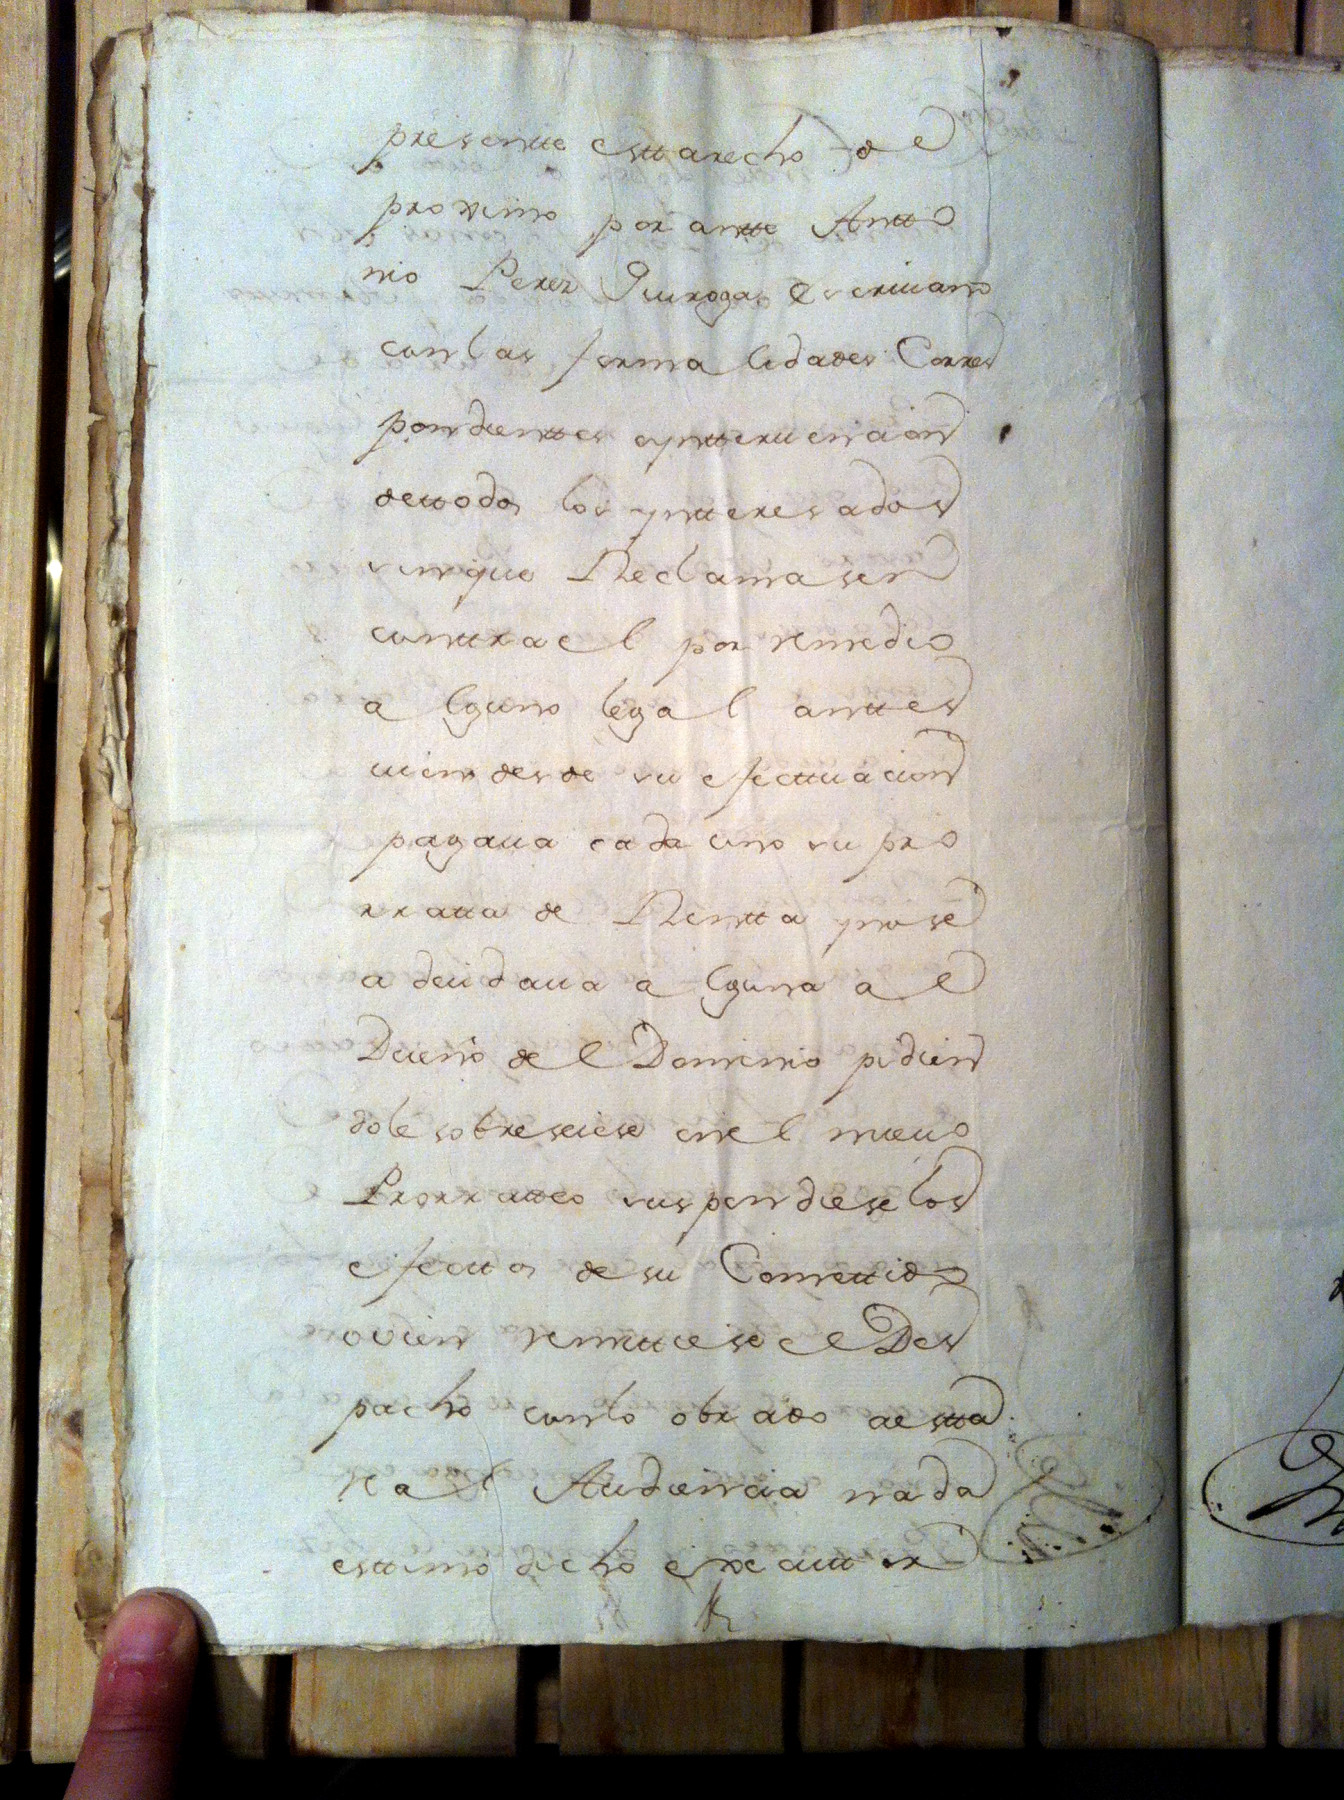 presentte esttar echo de e
proximo por antte Antto
nio Perez Quiroga escriuano
con las forma lidades Corres
pondienttes ayntteruencion
dettodos los yntteresados
sinque Reclamasen
conttra el por remedio
alguno legal anttes
uien desde su efecttuacion
pagaua cada uno su pro
rratta de Rentta ynose
adeudaua alguna a el
Dueño de el Dominio pidien
dole sobreseiese en el nueuo
Prorratteo suspendiese los
efecttos de su Comettido
o bien remittiese el Des
pacho con lo obrado a estta
Real Audiencia nada
esttimo dicho executtor